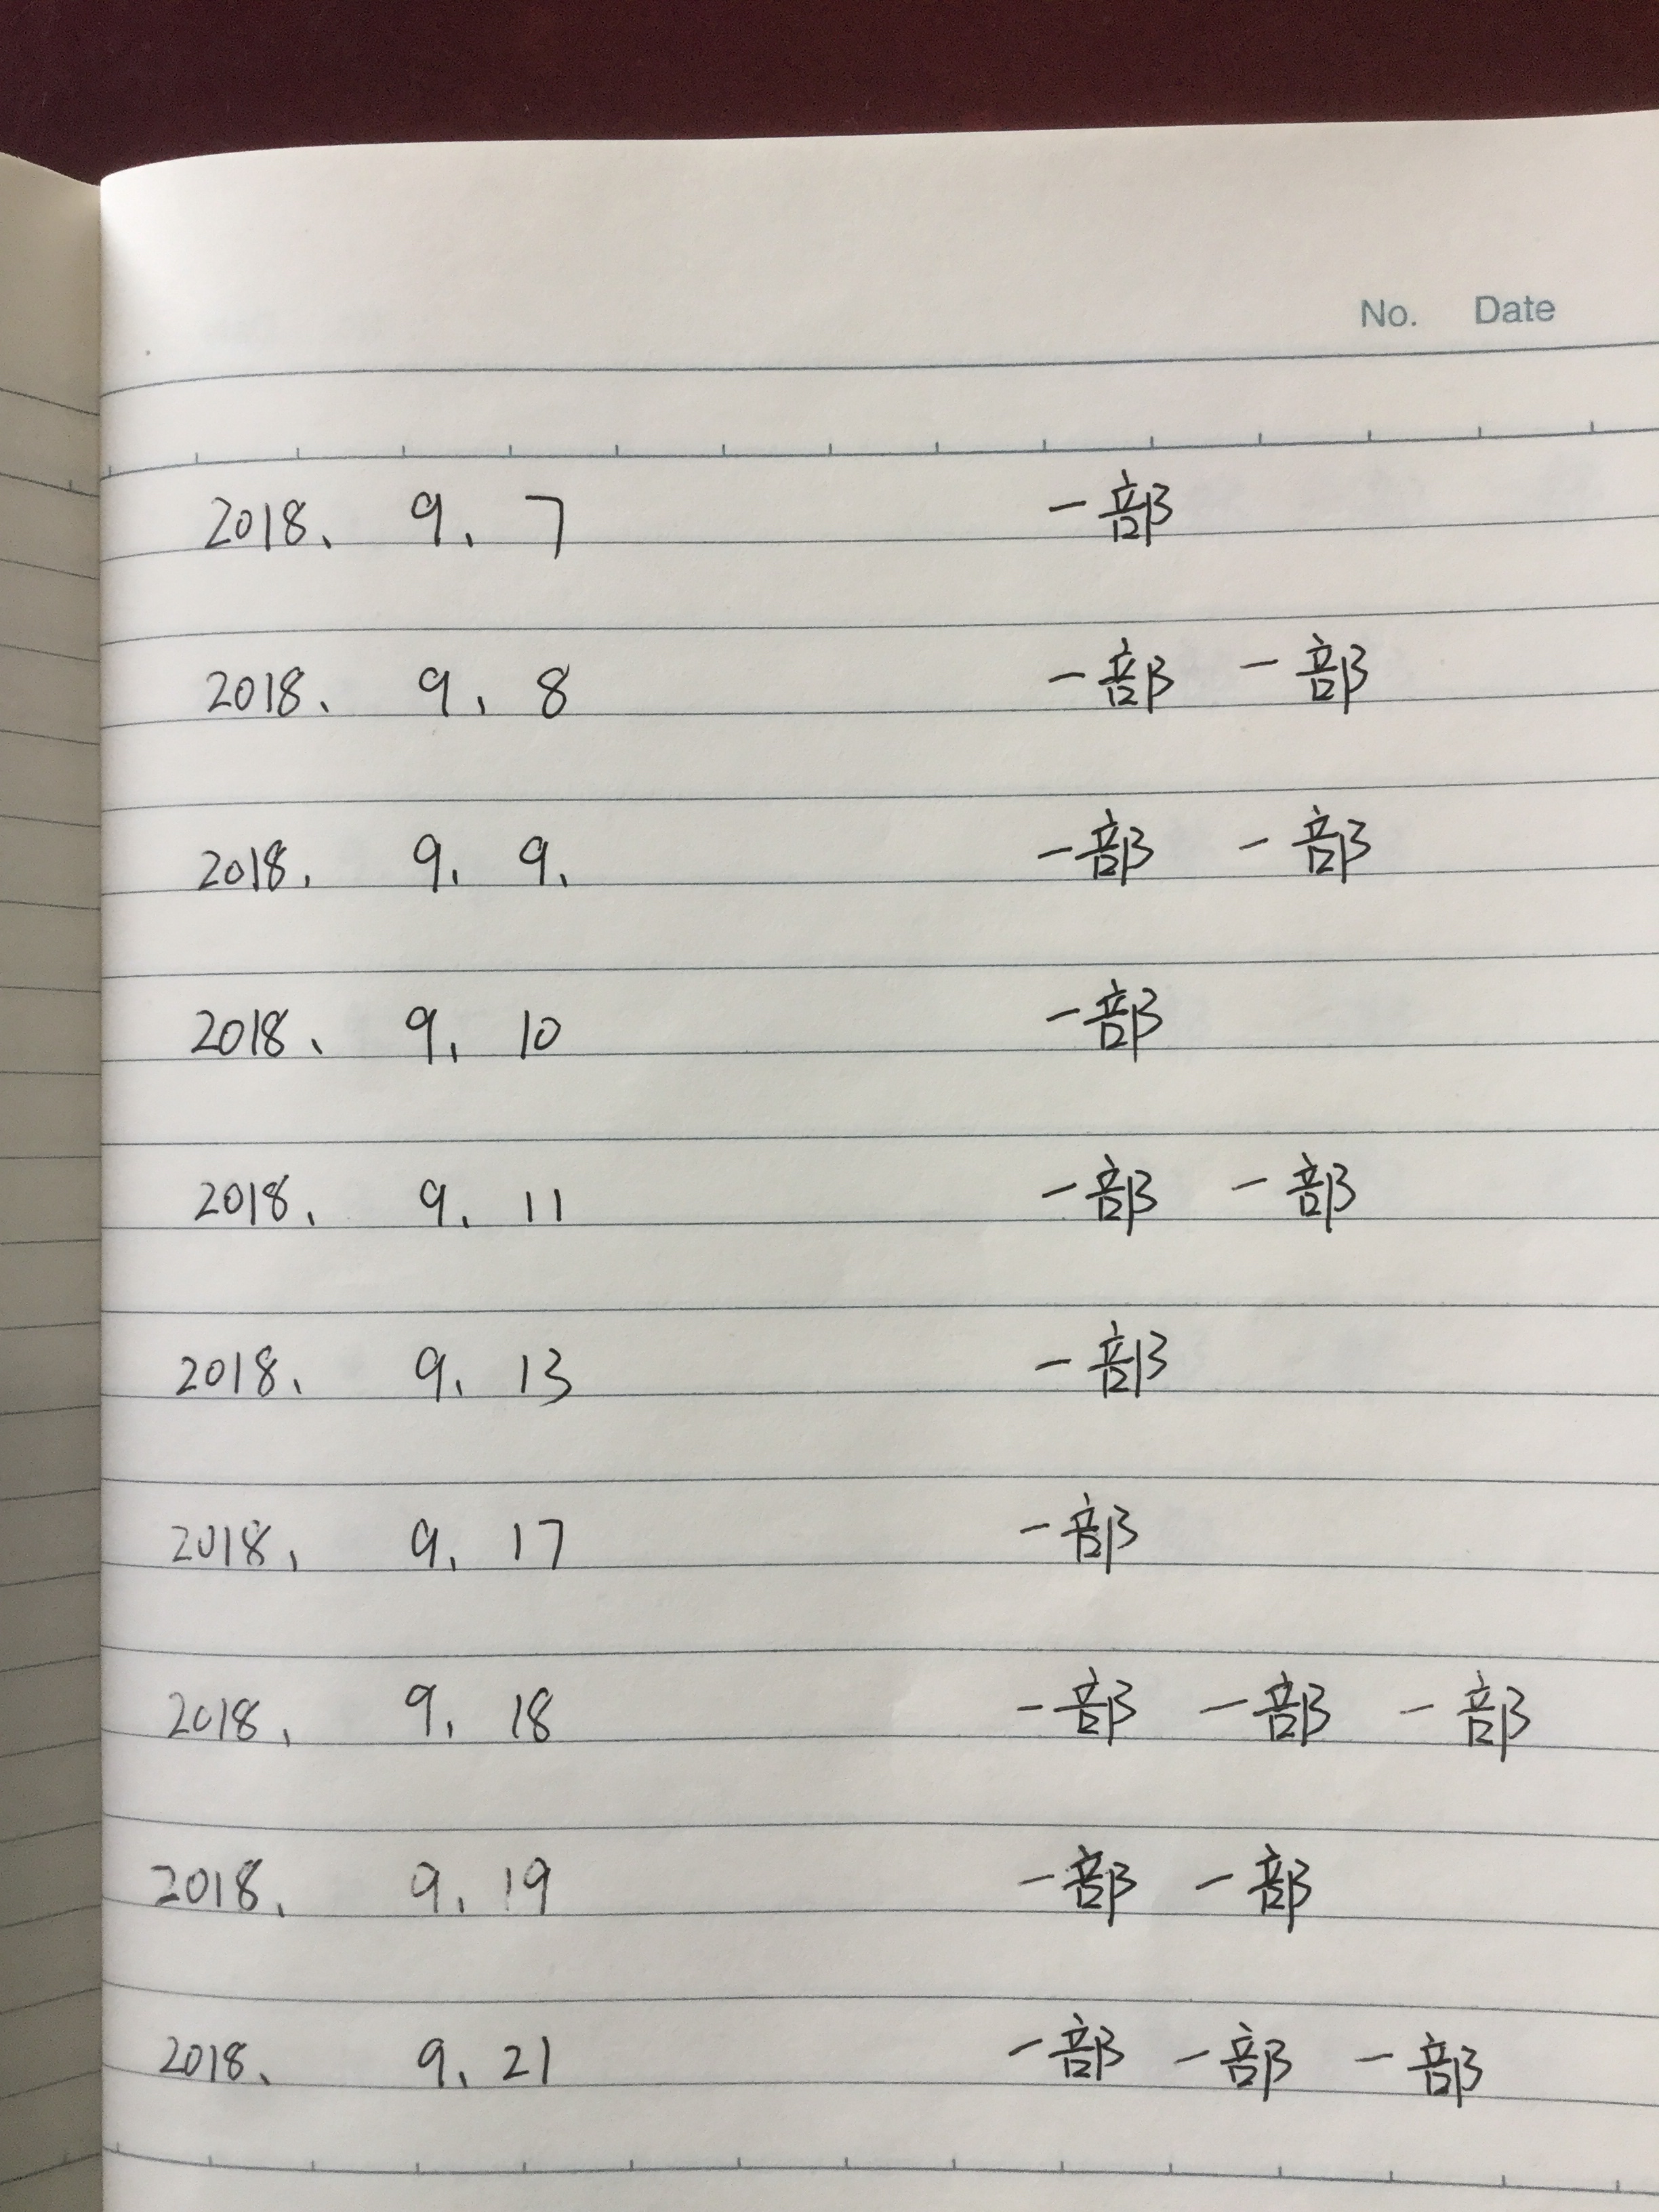 No. Date
2018、 9、 7 一部
2018、 9、 8 一部 一部
2018、 9、 9、 一部 一部
2018、 9、 10 一部
2018、 9、 11 一部 一部
2018、 9、 13 一部
2018、 9、 17 一部
2018、 9、 18 一部 一部 一部
2018、 9、 19 一部 一部
2018、 9、 21 一部 一部 一部